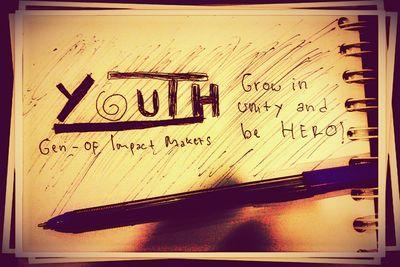 YOUTH
Gen-of Impact Makers
Grow in
unity and
be HERO!